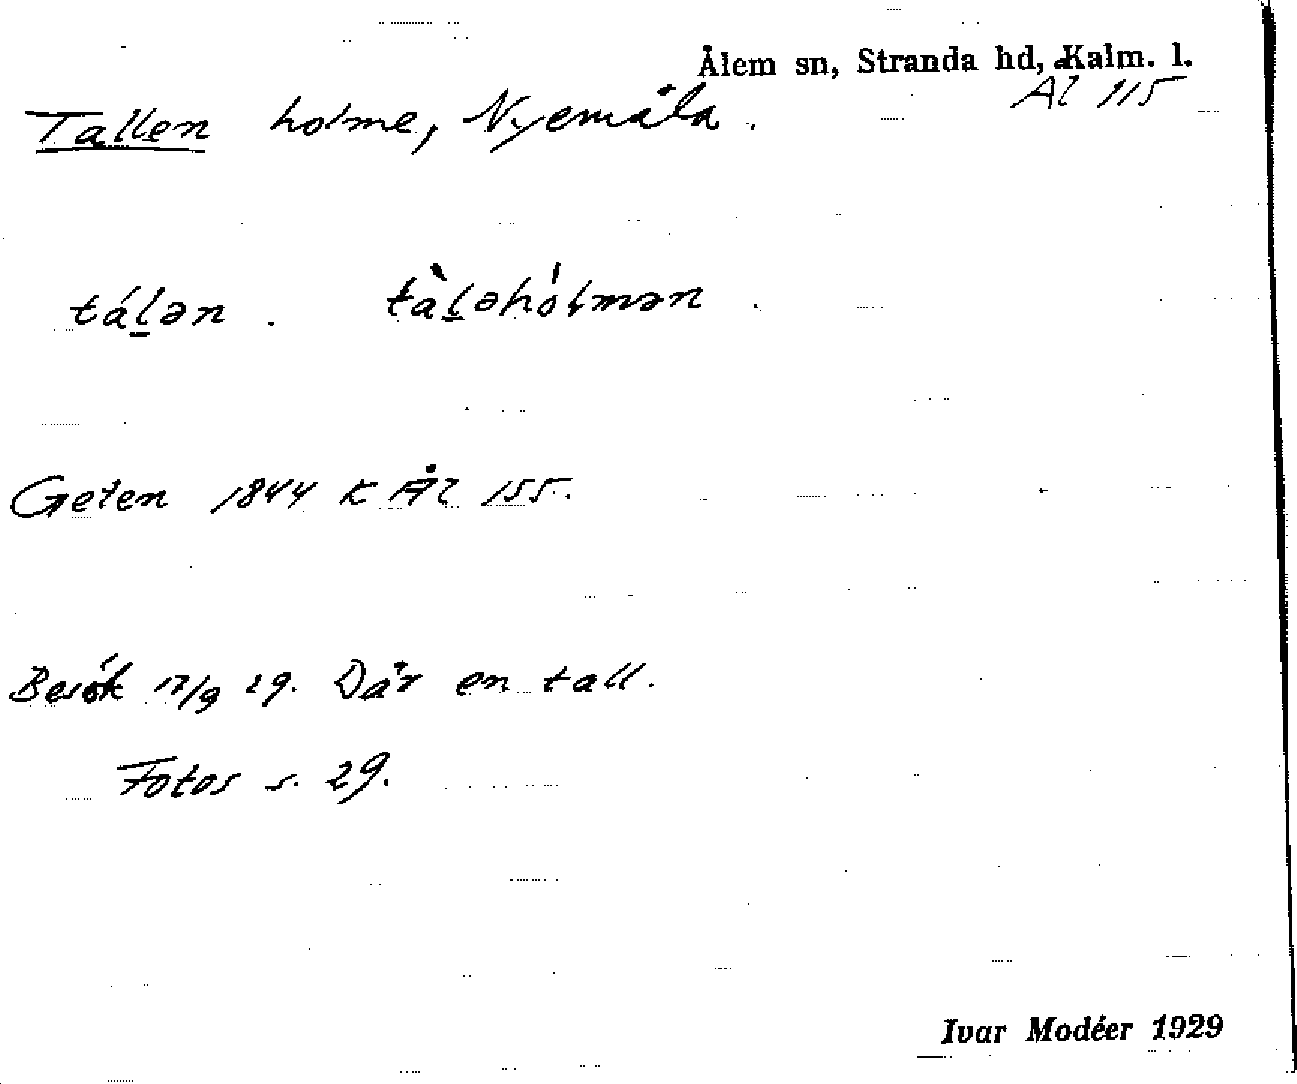 Ålem sn, Stranda hd, Kalm. l.
Ål 115
Tallen holme, Nyemåla.
táḻən. tàḻəhólmən.
Geten 1844 K Ål 155.
Besök 17/9 29. Där en tall.
Fotos s. 29.
Ivar Modéer 1929